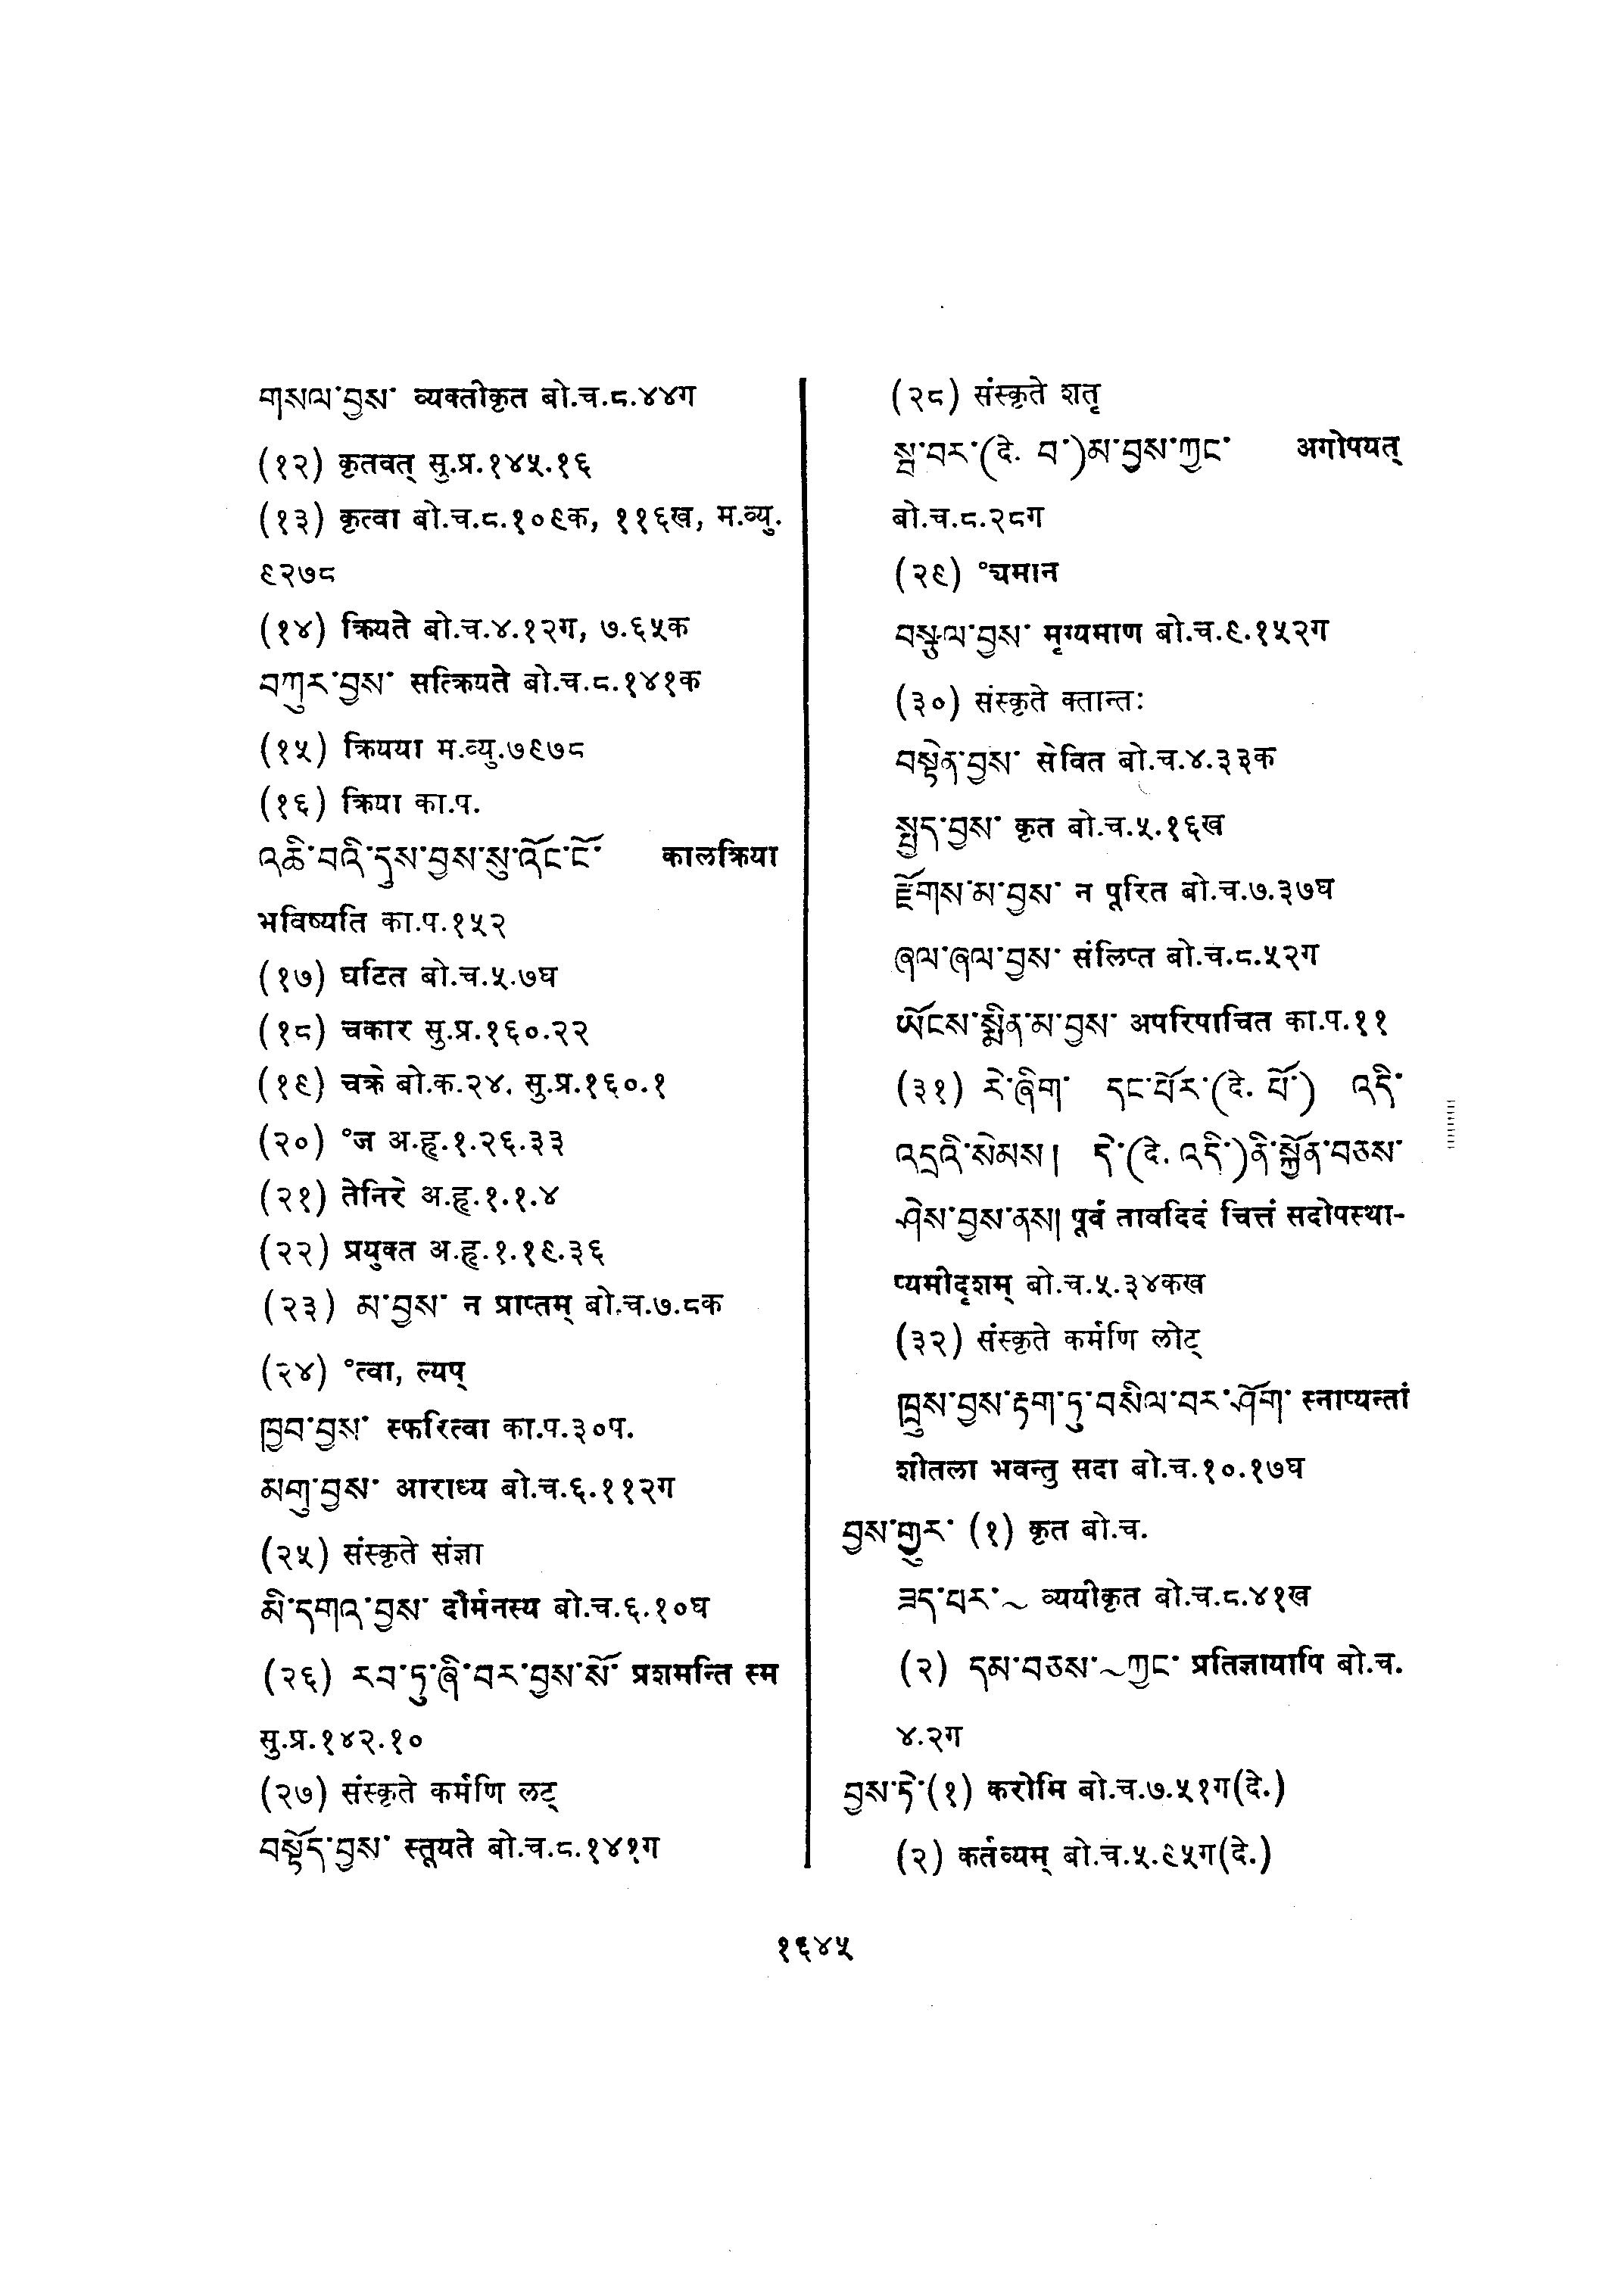 གསལ་བྱས་ व्यक्तीकृत बो.च.८.४४ग
(१२) कृतवत् सु.प्र.१४५.१६
(१३) कृत्वा बो.च.८.१०९क, ११६ख, म.व्यु.
९२७८
(१४) क्रियते बो.च.४.१२ग, ७.६५क
བཀུར་བྱས་ सत्क्रियते बो.च.८.१४१क
(१५) क्रियया म.व्यु.७९७८
(१६) क्रिया का.प.
འཆི་བའི་དུས་བྱས་སུ་འོང་ངོ་ कालक्रिया
भविष्यति का.प.१५२
(१७) घटित बो.च.५.७घ
(१८) चकार सु.प्र.१६०.२२
(१९) चक्रे बो.क.२४. सु.प्र.१६०.१
(२०) °ज अ.हृ.१.२६.३३
(२१) तेनिरे अ.हृ.१.१.४
(२२) प्रयुक्त अ.हृ.१.१९.३६
(२३) མ་བྱས་ न प्राप्तम् बो.च.७.८क
(२४) °त्वा, ल्यप्
ཁྱབ་བྱས་ स्फरित्वा का.प.३०प.
མགུ་བྱས་ आराध्य बो.च.६.११२ग
(२५) संस्कृते संज्ञा
མི་དགའ་བྱས་ दौर्मनस्य बो.च.६.१०घ
(२६) རབ་ཏུ་ཞི་བར་བྱས་སོ་ प्रशमन्ति स्म
सु.प्र.१४२.१०
(२७) संस्कृते कर्मणि लट्
བསྟོད་བྱས་ स्तूयते बो.च.८.१४१ग
(२८) संस्कृते शतृ
སྦ་བར་(दे. བ་)མ་བྱས་ཀྱང་ अगोपयत्
बो.च.८.२८ग
(२९) °यमान
བསྩལ་བྱས་ मृग्यमाण बो.च.९.१५२ग
(३०) संस्कृते क्तान्तः
བསྟེན་བྱས་ सेवित बो.च.४.३३क
སྤྱད་བྱས་ कृत बो.च.५.१६ख
རྫོགས་མ་བྱས་ न पूरित बो.च.७.३७घ
ཞལ་ཞལ་བྱས་ संलिप्त बो.च.८.५२ग
ཡོངས་སྨིན་མ་བྱས་ अपरिपाचित का.प.११
(३१) རེ་ཞིག་ དང་པོར་(दे. པོ་) འདི་
འདྲའི་སེམས། དེ་(दे. འདི་)ནི་སྐྱོན་བཅས་
ཤེས་བྱས་ནས། पूर्वं तावदिदं चित्तं सदोपस्था-
प्यमीदृशम् बो.च.५.३४कख
(३२) संस्कृते कर्मणि लोट्
ཁྲུས་བྱས་རྟག་ཏུ་བསིལ་བར་ཤོག་ स्नाप्यन्तां
शीतला भवन्तु सदा बो.च.१०.१७घ
བྱས་གྱུར་ (१) कृत बो.च.
ཟད་པར་~ व्ययीकृत बो.च.८.४१ख
(२) དམ་བཅས་~ཀྱང་ प्रतिज्ञायापि बो.च.
४.२ग
བྱས་ཏེ་(१) करोमि बो.च.७.५१ग(दे.)
(२) कर्तव्यम् बो.च.५.९५ग(दे.)
१६४५